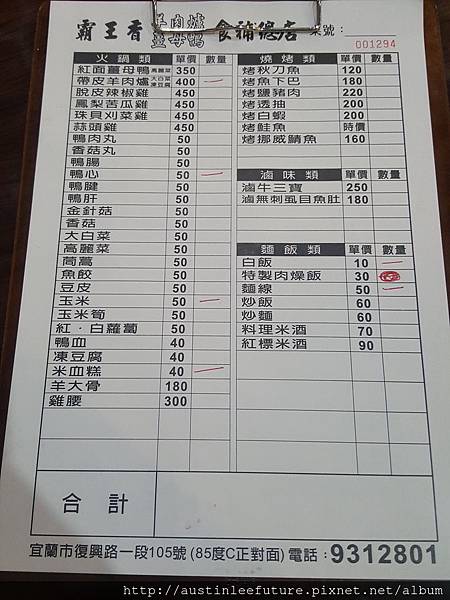 霸王香 羊肉爐 食補總店 桌號：
薑母鴨
001294
火鍋類 單價 數量
紅面薑母鴨 高麗菜 350
帶皮羊肉爐 大白菜 凍豆腐 400 一
脫皮辣椒雞 450
鳳梨苦瓜雞 450
珠貝刈菜雞 450
蒜頭雞 450
鴨肉丸 50
香菇丸 50
鴨腸 50
鴨心 50 一
鴨腱 50
鴨肝 50
金針菇 50
香菇 50
大白菜 50
高麗菜 50
茼蒿 50
魚餃 50
豆皮 50
玉米 50 一
玉米筍 50
紅．白蘿蔔 50
鴨血 40
凍豆腐 40
米血糕 40 一
羊大骨 180
雞腰 300
燒烤類 單價 數量
烤秋刀魚 120
烤魚下巴 180
烤鹽豬肉 220
烤透抽 200
烤白蝦 200
烤鮭魚 時價
烤挪威鯖魚 160
滷味類 單價 數量
滷牛三寶 250
滷無刺虱目魚肚 180
麵飯類 單價 數量
白飯 10 一
特製肉燥飯 30
麵線 50 一
炒飯 60
炒麵 60
料理米酒 70
紅標米酒 90
合計
宜蘭市復興路一段105號 (85度C正對面) 電話：9312801
http://austinleefuture.pixnet.net/album